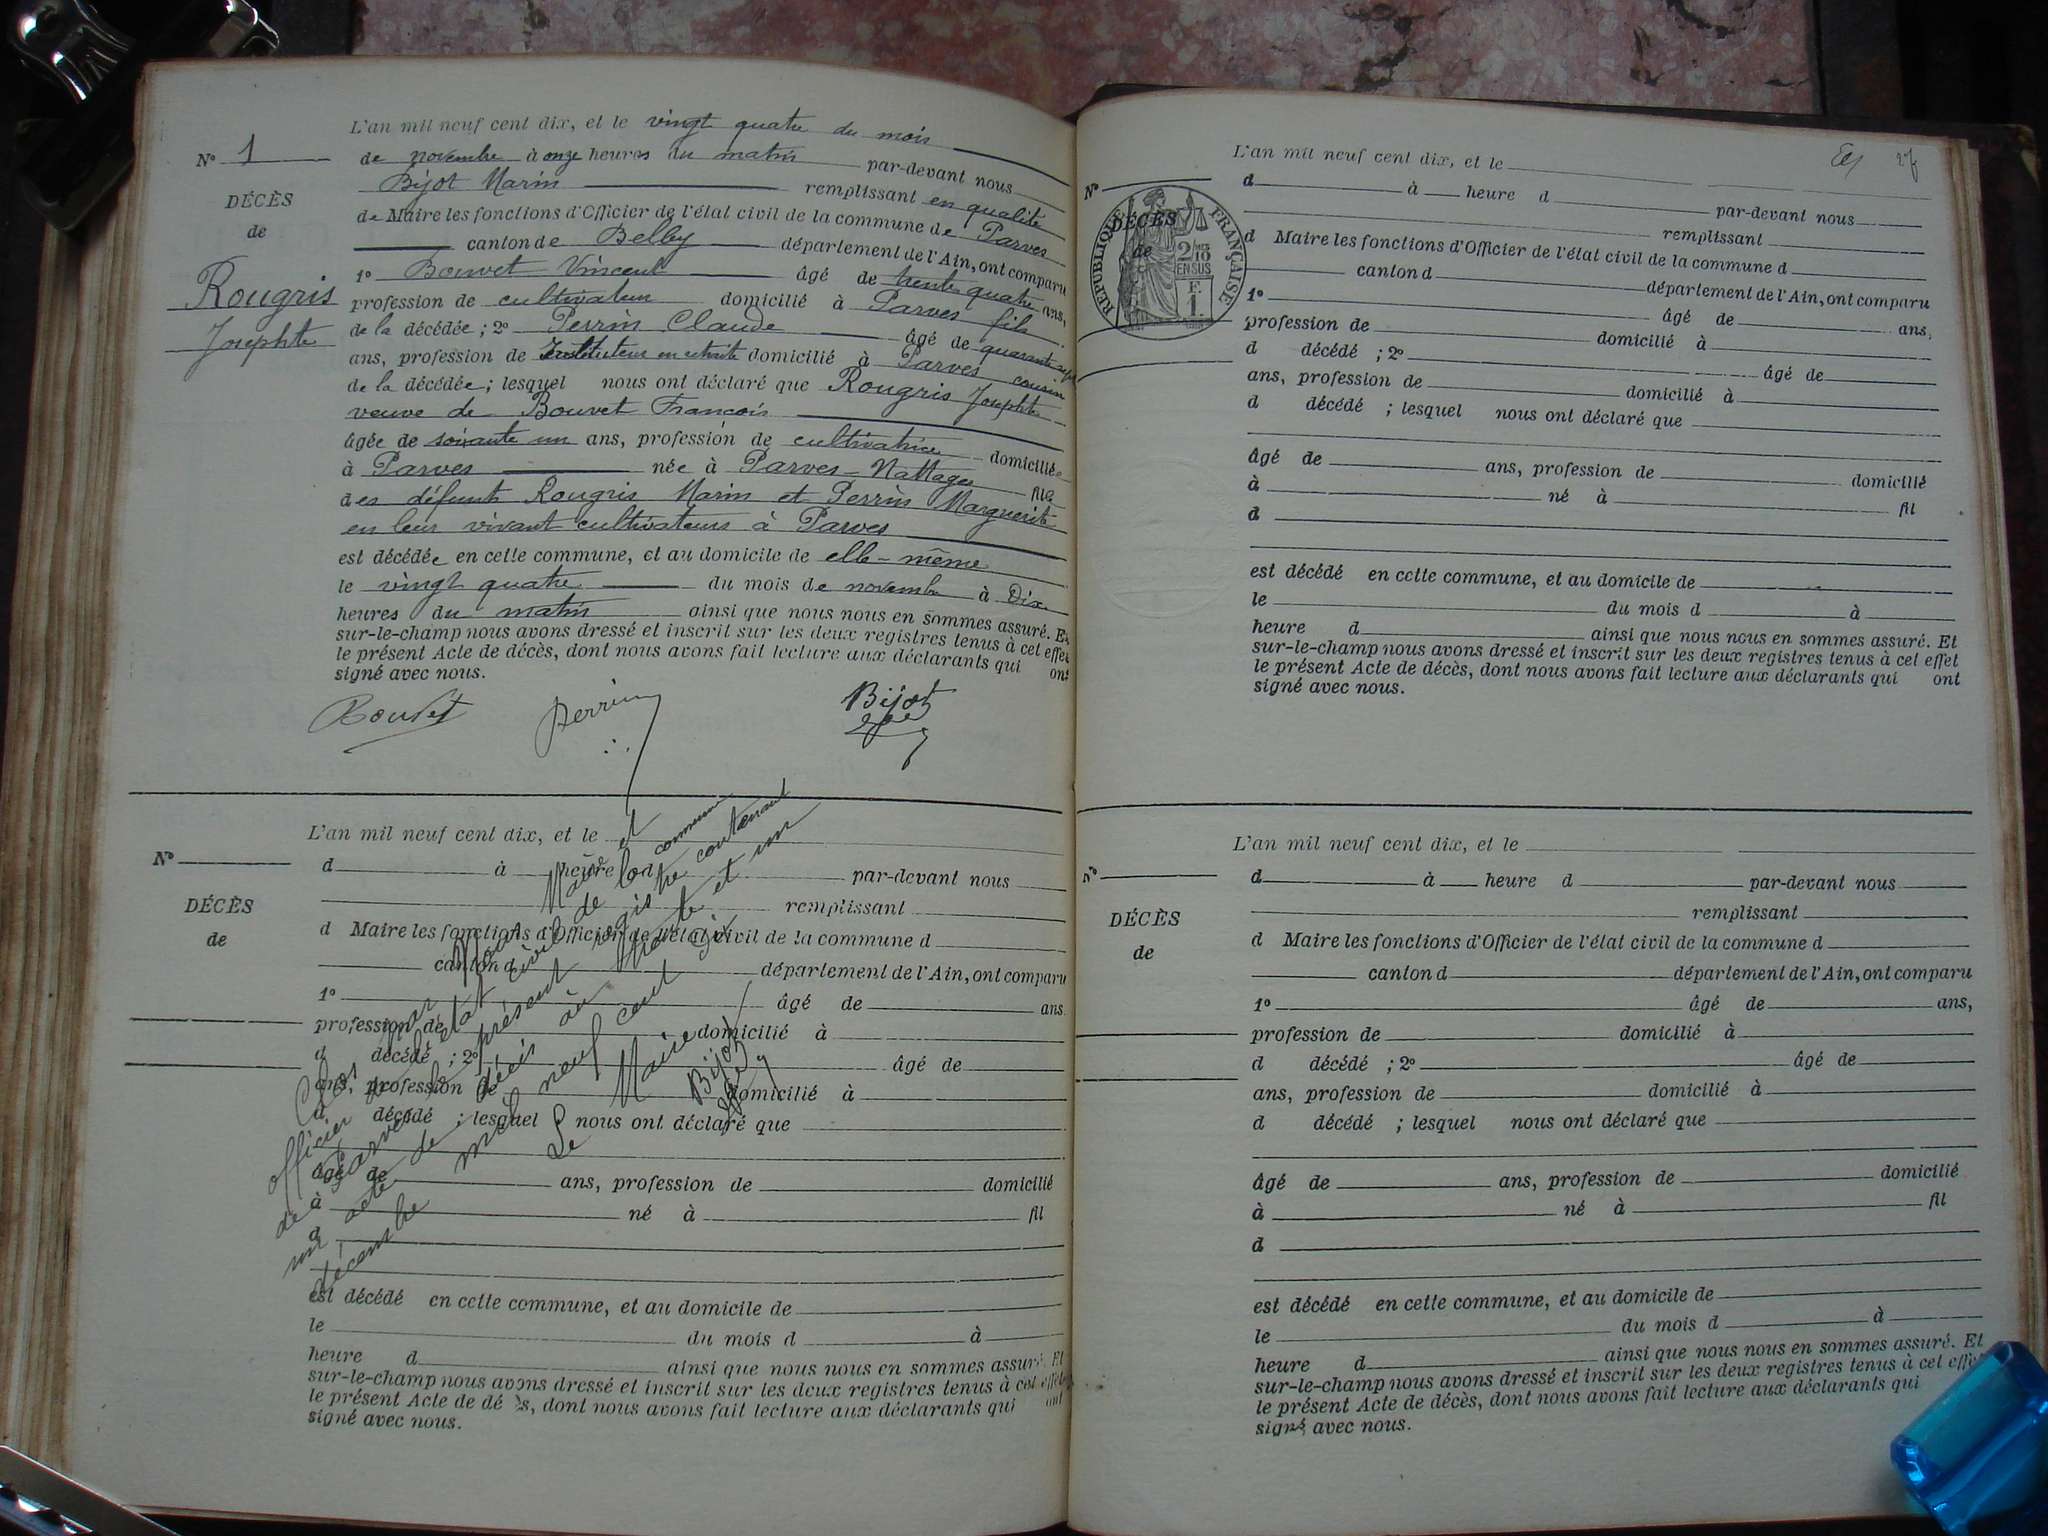 L'an mil neuf cent dix, et le vingt quatre du mois
N° 1
de novembre à onze heures du matin par-devant nous
Bijot Marin remplissant en qualité
DÉCÈS
de Maire les fonctions d'Officier de l'état civil de la commune de Parves
de
canton de Belley département de l'Ain, ont comparu
1° Bouvet Vincent âgé de trente quatre ans,
Rougris
profession de cultivateur domicilié à Parves fils
Josephte
de la décédée ; 2° Perrin Claude âgé de quarante sept
ans, profession de Instituteur en retraite domicilié à Parves cousin
de la décédée ; lesquel nous ont déclaré que Rougris Josephte
veuve de Bouvet François
âgée de soixante un ans, profession de cultivatrice domiciliée
à Parves née à Parves-Nattages fille
des défunts Rougris Marin et Perrin Marguerite
en leur vivant cultivateurs à Parves
est décédée en cette commune, et au domicile de elle-même
le vingt quatre du mois de novembre à Dix
heures du matin ainsi que nous nous en sommes assuré. Et
sur-le-champ nous avons dressé et inscrit sur les deux registres tenus à cet effet
le présent Acte de décès, dont nous avons fait lecture aux déclarants qui ont
signé avec nous.
Bouvet Perrin Bijot
L'an mil neuf cent dix, et le
N°
d à heure d par-devant nous
remplissant
DÉCÈS
d Maire les fonctions d'Officier de l'état civil de la commune d
de
canton d département de l'Ain, ont comparu
1° âgé de ans
profession de domicilié à
d décédé ; 2° âgé de
ans, profession de domicilié à
d décédé ; lesquel nous ont déclaré que
âgé de ans, profession de domicilié
à né à fil
d
est décédé en cette commune, et au domicile de
le du mois d à
heure d ainsi que nous nous en sommes assuré. Et
sur-le-champ nous avons dressé et inscrit sur les deux registres tenus à cet effet
le présent Acte de décès, dont nous avons fait lecture aux déclarants qui ont
signé avec nous.
Clos par Nous Maire et
officier de l'état civil de la commune
de Parves le présent registre contenant
un acte de décès au trente et un
décembre mil neuf cent dix
Le Maire
Bijot
27
L'an mil neuf cent dix, et le
N°
d à heure d par-devant nous
remplissant
DÉCÈS
de
RÉPUBLIQUE FRANÇAISE
2/10 EN SUS
F. 1.
d Maire les fonctions d'Officier de l'état civil de la commune d
canton d département de l'Ain, ont comparu
1° âgé de ans,
profession de domicilié à
d décédé ; 2° âgé de
ans, profession de domicilié à
d décédé ; lesquel nous ont déclaré que
âgé de ans, profession de domicilié
à né à fil
d
est décédé en cette commune, et au domicile de
le du mois d à
heure d ainsi que nous nous en sommes assuré. Et
sur-le-champ nous avons dressé et inscrit sur les deux registres tenus à cet effet
le présent Acte de décès, dont nous avons fait lecture aux déclarants qui ont
signé avec nous.
L'an mil neuf cent dix, et le
N°
d à heure d par-devant nous
remplissant
DÉCÈS
d Maire les fonctions d'Officier de l'état civil de la commune d
de
canton d département de l'Ain, ont comparu
1° âgé de ans,
profession de domicilié à
d décédé ; 2° âgé de
ans, profession de domicilié à
d décédé ; lesquel nous ont déclaré que
âgé de ans, profession de domicilié
à né à fil
d
est décédé en cette commune, et au domicile de
le du mois d à
heure d ainsi que nous nous en sommes assuré. Et
sur-le-champ nous avons dressé et inscrit sur les deux registres tenus à cet effet
le présent Acte de décès, dont nous avons fait lecture aux déclarants qui
signé avec nous.